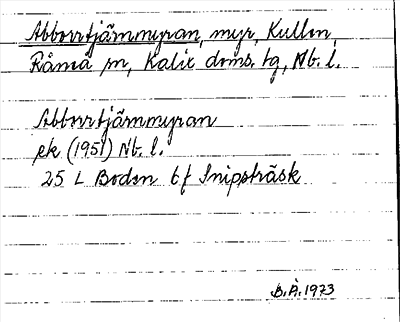 Abborrtjärnmyran, myr, Kullen,
Råneå sn, Kalix doms. tg, Nb. l.
Abborrtjärnmyran
ek (1951) Nb. l.
25 L Boden 6 f Snipsträsk
B.Å. 1973